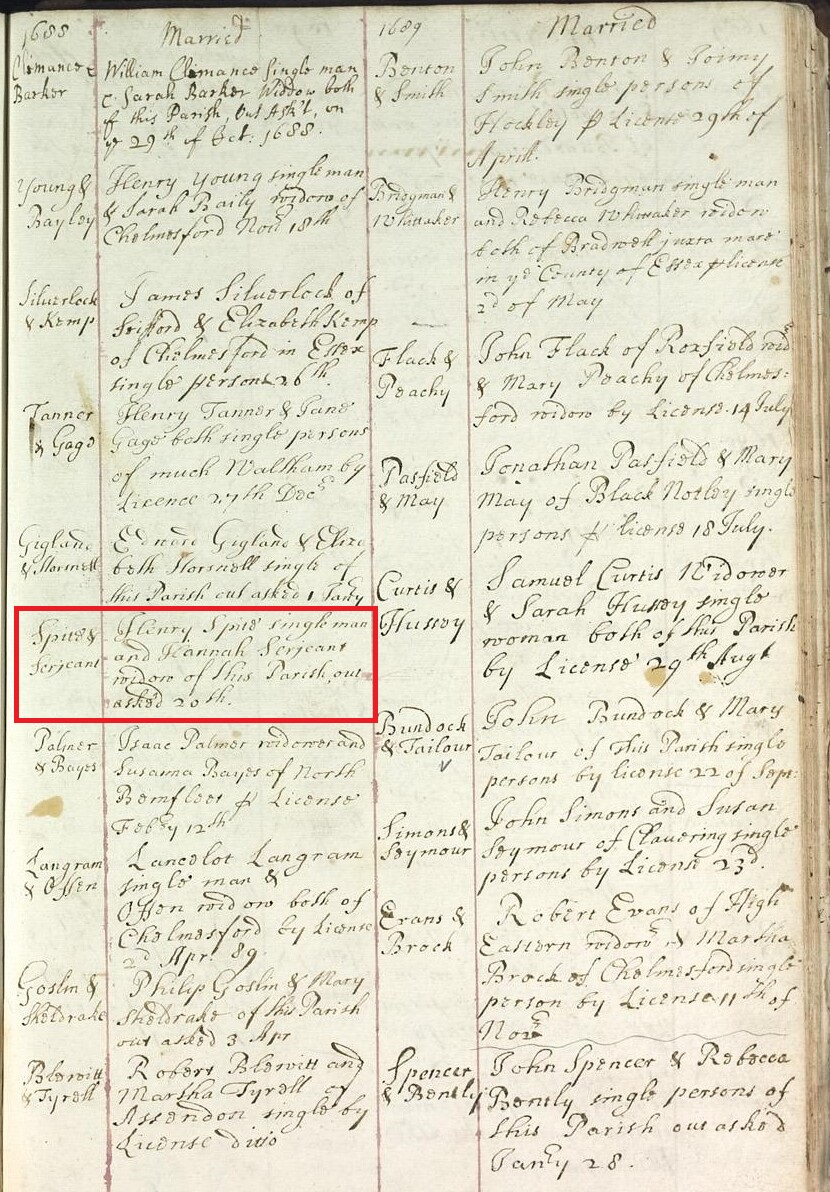 1688 Married
Clemance &
Barker
William Clemance single man
& Sarah Barker Widdow both
of this Parish, Out Ask't, on
ye 29th of Oct: 1688.
Young &
Bayley
Henry Young single man
& Sarah Baily widow of
Chelmesford Nov 18th
Silverlock
& Kemp
James Silverlock of
& Elizabeth Kemp
of Chelmesford in Essex
single persons 26th.
Tanner
& Gage
Henry Tanner & Jane
Gage both single persons
of much Waltham by
Licence 27th Decr
Gigland
& Horsnell
Edward Gigland & Eliza
beth Horsnell single of
this Parish out asked 1 Janry
Spite &
Serjeant
Henry Spite single man
and Hannah Serjeant
widow of this Parish out
asked 20th.
Palmer
& Bayes
Isaac Palmer widower and
Susanna Bayes of North
Bemfleet p License
Febry 12th
Langram
& Offen
Lancelot Langram
single man &
Offen widow both of
Chelmesford by License
2d Apr. 89
Goslin &
Sheldrake
Philip Goslin & Mary
Sheldrake of this Parish
out asked 3 Apr
Blewitt
& Tyrell
Robert Blewitt and
Martha Tyrell of
Assendon single by
License ditto
1689 Married
Benton
& Smith
John Benton &
Smith single persons of
Hockley p License 29th of
Aprill.
Bridgman &
Whittaker
Henry Bridgman single man
and Rebecca Whittaker widow
both of Bradwell juxta mare
in ye County of Essex p licence
2d of May
Flack &
Peachy
John Flack of Roxfield widr
& Mary Peachy of Chelmes:
ford widow by License 14 July
Pasfield
& May
Jonathan Pasfield & Mary
May of Black Notley single
persons p license 18 July.
Curtis &
Hussey
Samuel Curtis Widower
& Sarah Hussey single
woman both of this Parish
by License 29th Augt
Bundock
& Tailour
John Bundock & Mary
Tailour of this Parish single
persons by license 22 of Sept:
Simons &
Seymour
John Simons and Susan
Seymour of Clavering single
persons by License 23d.
Evans &
Brock
Robert Evans of High
Eastern widowr & Martha
Brock of Chelmesford single
person by License 11th of
Novr
Spencer
& Bently
John Spencer & Rebecca
Bently single persons of
this Parish out asked
Janry 28.